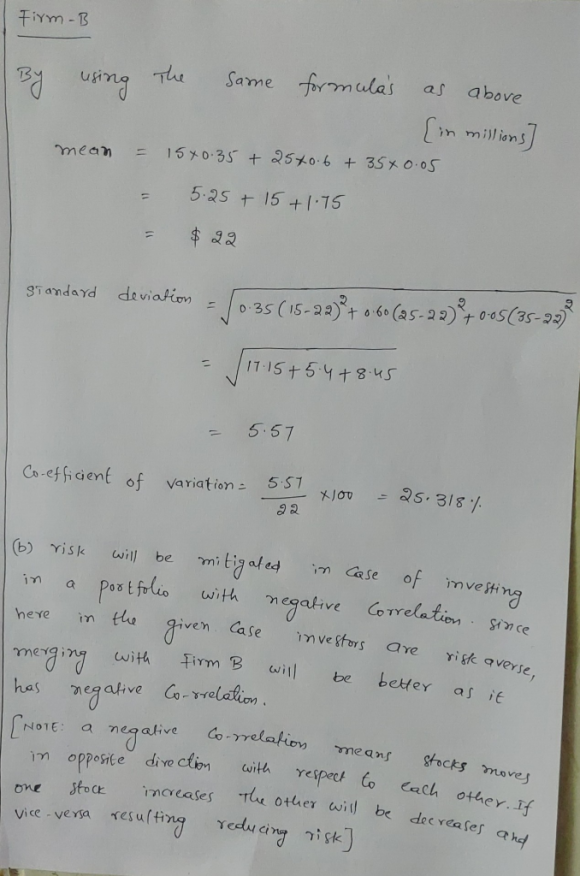 Firm-B
By using The Same formula's as above
[in millions]
mean = 15×0.35 + 25×0.6 + 35×0.05
= 5.25 + 15 + 1.75
= $ 22
Standard deviation = √0.35(15-22)² + 0.60(25-22)² + 0.05(35-22)²
= √17.15+5.4+8.45
= 5.57
Co-efficient of variation = 5.57/22 ×100 = 25.318%.
(b) risk will be mitigated in case of investing
in a portfolio with negative Correlation. Since
here in the given Case investors are risk averse,
merging with Firm B will be better as it
has negative Co-rrelation.
[NOTE: a negative Co-rrelation means stocks moves
in opposite direction with respect to each other. If
one stock increases the other will be decreases and
vice-versa resulting reducing risk]